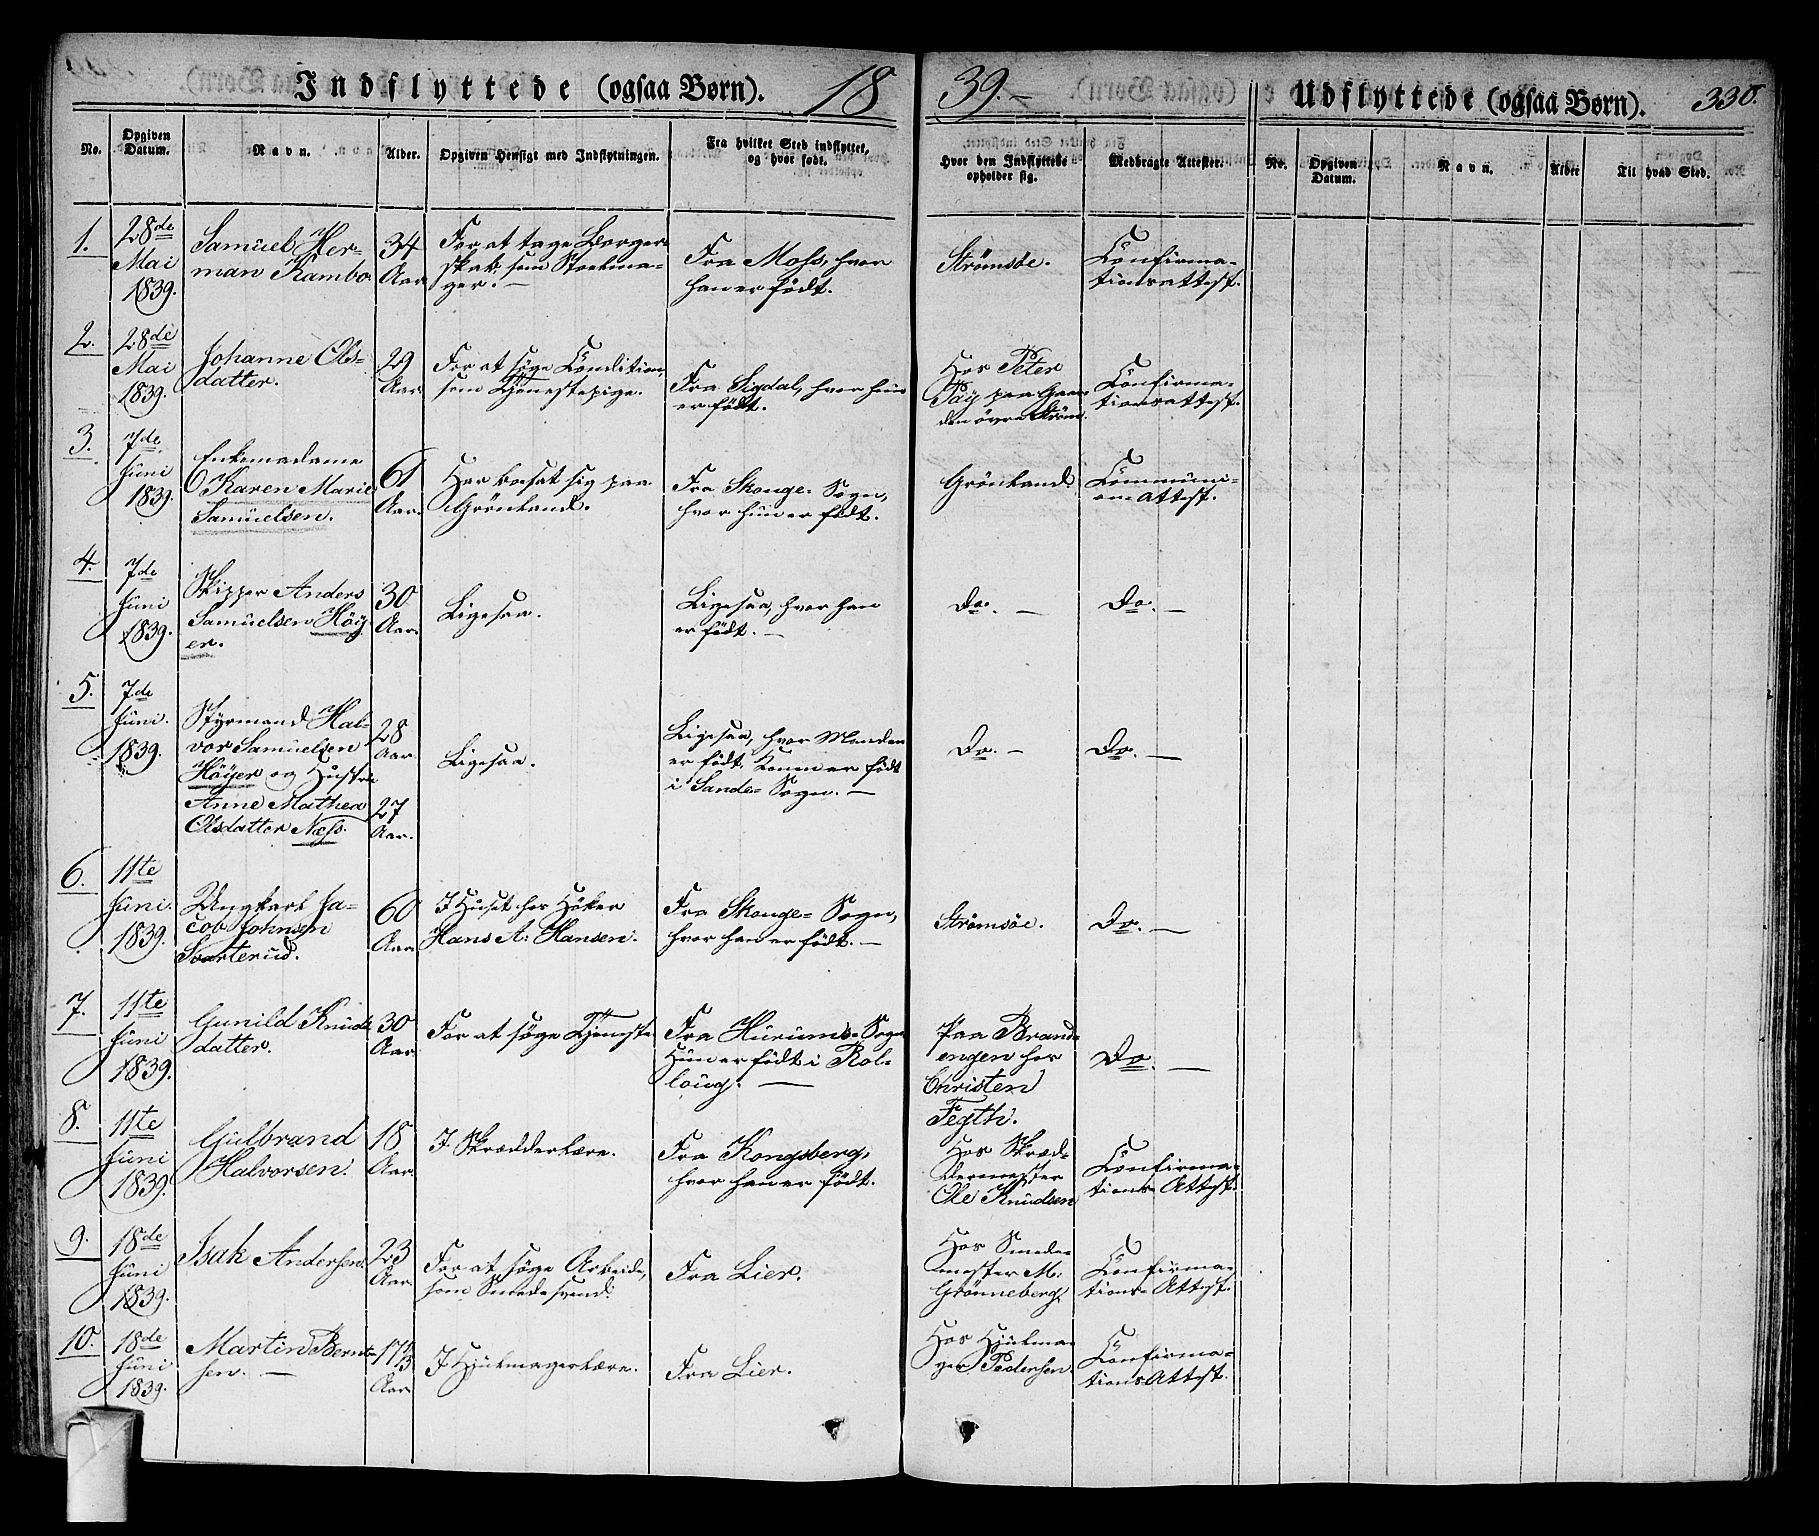 Indflyttede (ogsaa Børn). 18
39.- Udflyttede (ogsaa Børn). 330.
No. Opgiven Datum. Navn. Alder. Opgiven Hensigt med Indflytningen. Fra hvilket Sted indflyttet, og hvor født. Hvor den Indflyttede opholder sig. Medbragte Attester. No. Opgiven Datum. Navn. Alder Til hvad Sted.
1. 28de Mai 1839. Samuel Herman Kambo. 34 Aar For at tage Borgerskab som Snedkermager. Fra Moss, hvor han er født. Strømsøe. Confirmationsattest.
2. 28de Mai 1839. Johanne Olsdatter. 29 Aar. For at søge Condition som Tjenestepige. Fra Sigdal, hvor hun er født. Hos Peter Paÿ paa Gaarden øvre Strøm. Confirmationsattest.
3. 7de Juni 1839. Enkemadame Karen Marie Samuelsen. 61 Aar. Har bosat sig paa Grönland. Fra Skouge-Sogn, hvor hun er född. Grönland. Communion-Attest.
4. 7de Juni 1839. Skipper Anders Samuelsen Höyer. 30 Aar. Ligesaa. Ligesaa, hvor han er född. — Do. — Do. —
5. 7de Juni. 1839. Styrmand Halvor Samuelsen Höyer og Hustru Anne Mathea Olsdatter Næss. 28 Aar 27 Aar. Ligesaa. Ligesaa, hvor Manden er född, Konen er född i Sande-Sogn. — Do. — Do. —
6. 11te Juni. 1839. Ungkarl Jacob Johnsen Svarterud. 60 Aar I Huset hos Höker Hans A: Hansen. Fra Skouge-Sogn, hvor han er född. — Strømsöe. Do. —
7. 11te Juni 1839. Gunild Knudsdatter. 30 Aar For at söge Tjeneste Fra Hurums-Sogn Hun er född i Rollaug. — Paa Brandengen hos Christen Fegth. Do. —
8. 11te Juni 1839. Gulbrand Halvorsen. 18 Aar. I Skrædderlære. Fra Kongsberg, hvor han er född. Hos Skræddermester Ole Knudsen Confirmations-Attest.
9. 18de Juni 1839. Isak Andersen. 23 Aar. For at söge Arbeide, som Smedesvend. Fra Lier. Hos Smedemester M: Grönneberg. Confirmations-Attest.
10. 18de Juni 1839. Martin Berntsen. — 17 1/3 Aar I Hjulmagerlære. Fra Lier. Hos Hjulmager Pedersen. ConfirmationsAttest.